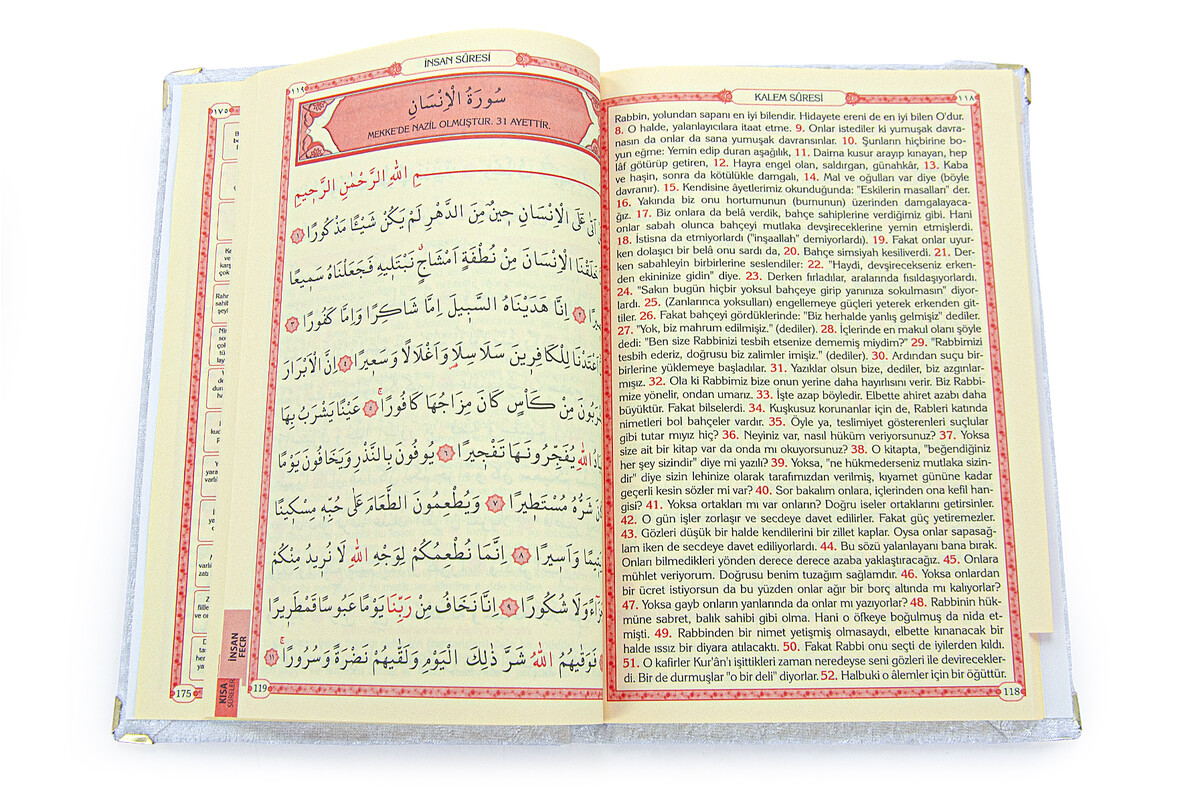 ١١٩
İNSAN SÛRESİ
سُورَةُ الْاِنْسَانِ
MEKKE'DE NAZİL OLMUŞTUR. 31 AYETTİR.
مِ اللّٰهِ الرَّحْمٰنِ الرَّح۪يمِ
اَتٰى عَلَى الْاِنْسَانِ ح۪ينٌ مِنَ الدَّهْرِ لَمْ يَكُنْ شَيْـًٔا مَذْكُورًا ﴿١﴾
خَلَقْنَا الْاِنْسَانَ مِنْ نُطْفَةٍ اَمْشَاجٍۗ نَبْتَل۪يهِ فَجَعَلْنَاهُ سَم۪يعًا
﴿٢﴾ اِنَّا هَدَيْنَاهُ السَّب۪يلَ اِمَّا شَاكِرًا وَاِمَّا كَفُورًا ﴿٣﴾
اَعْتَدْنَا لِلْكَافِر۪ينَ سَلَاسِلَا۬ وَاَغْلَالًا وَسَع۪يرًا ﴿٤﴾ اِنَّ الْاَبْرَارَ
مِنْ كَأْسٍ كَانَ مِزَاجُهَا كَافُورًاۚ ﴿٥﴾ عَيْنًا يَشْرَبُ بِهَا
اللّٰهِ يُفَجِّرُونَهَا تَفْج۪يرًا ﴿٦﴾ يُوفُونَ بِالنَّذْرِ وَيَخَافُونَ يَوْمًا
شَرُّهُ مُسْتَط۪يرًا ﴿٧﴾ وَيُطْعِمُونَ الطَّعَامَ عَلٰى حُبِّه۪ مِسْك۪ينًا
وَاَس۪يرًا ﴿٨﴾ اِنَّمَا نُطْعِمُكُمْ لِوَجْهِ اللّٰهِ لَا نُر۪يدُ مِنْكُمْ
وَلَا شُكُورًا ﴿٩﴾ اِنَّا نَخَافُ مِنْ رَبِّنَا يَوْمًا عَبُوسًا قَمْطَر۪يرًا
فَوَقٰيهُمُ اللّٰهُ شَرَّ ذٰلِكَ الْيَوْمِ وَلَقّٰيهُمْ نَضْرَةً وَسُرُورًاۚ ﴿١١﴾
119
İNSAN
FECR
KISA
SÛRELER
١٧٥
175
KALEM SÛRESİ
١١٨
Rabbin, yolundan sapanı en iyi bilendir. Hidayete ereni de en iyi bilen O'dur.
8. O halde, yalanlayıcılara itaat etme. 9. Onlar istediler ki yumuşak davra-
nasın da onlar da sana yumuşak davransınlar. 10. Şunların hiçbirine bo-
yun eğme: Yemin edip duran aşağılık, 11. Daima kusur arayıp kınayan, hep
lâf götürüp getiren, 12. Hayra engel olan, saldırgan, günahkâr, 13. Kaba
ve haşin, sonra da kötülükle damgalı, 14. Mal ve oğulları var diye (böyle
davranır). 15. Kendisine âyetlerimiz okunduğunda: "Eskilerin masalları" der.
16. Yakında biz onu hortumunun (burnunun) üzerinden damgalayaca-
ğız. 17. Biz onlara da belâ verdik, bahçe sahiplerine verdiğimiz gibi. Hani
onlar sabah olunca bahçeyi mutlaka devşireceklerine yemin etmişlerdi.
18. İstisna da etmiyorlardı ("inşaallah" demiyorlardı). 19. Fakat onlar uyur-
ken dolaşıcı bir belâ onu sardı da, 20. Bahçe simsiyah kesiliverdi. 21. Der-
ken sabahleyin birbirlerine seslendiler: 22. "Haydi, devşirecekseniz erken-
den ekininize gidin" diye. 23. Derken fırladılar, aralarında fısıldaşıyorlardı.
24. "Sakın bugün hiçbir yoksul bahçeye girip yanınıza sokulmasın" diyor-
lardı. 25. (Zanlarınca yoksulları) engellemeye güçleri yeterek erkenden git-
tiler. 26. Fakat bahçeyi gördüklerinde: "Biz herhalde yanlış gelmişiz" dediler.
27. "Yok, biz mahrum edilmişiz." (dediler). 28. İçlerinde en makul olanı şöyle
dedi: "Ben size Rabbinizi tesbih etsenize dememiş miydim?" 29. "Rabbimizi
tesbih ederiz, doğrusu biz zalimler imişiz." (dediler). 30. Ardından suçu bir-
birlerine yüklemeye başladılar. 31. Yazıklar olsun bize, dediler, biz azgınlar-
mışız. 32. Ola ki Rabbimiz bize onun yerine daha hayırlısını verir. Biz Rabbi-
mize yönelir, ondan umarız. 33. İşte azap böyledir. Elbette ahiret azabı daha
büyüktür. Fakat bilselerdi. 34. Kuşkusuz korunanlar için de, Rableri katında
nimetleri bol bahçeler vardır. 35. Öyle ya, teslimiyet gösterenleri suçlular
gibi tutar mıyız hiç? 36. Neyiniz var, nasıl hüküm veriyorsunuz? 37. Yoksa
size ait bir kitap var da onda mı okuyorsunuz? 38. O kitapta, "beğendiğiniz
her şey sizindir" diye mi yazılı? 39. Yoksa, "ne hükmederseniz mutlaka sizin-
dir" diye sizin lehinize olarak tarafımızdan verilmiş, kıyamet gününe kadar
geçerli kesin sözler mi var? 40. Sor bakalım onlara, içlerinden ona kefil han-
gisi? 41. Yoksa ortakları mı var onların? Doğru iseler ortaklarını getirsinler.
42. O gün işler zorlaşır ve secdeye davet edilirler. Fakat güç yetiremezler.
43. Gözleri düşük bir halde kendilerini bir zillet kaplar. Oysa onlar sapasağ-
lam iken de secdeye davet ediliyorlardı. 44. Bu sözü yalanlayanı bana bırak.
Onları bilmedikleri yönden derece derece azaba yaklaştıracağız. 45. Onlara
mühlet veriyorum. Doğrusu benim tuzağım sağlamdır. 46. Yoksa onlardan
bir ücret istiyorsun da bu yüzden onlar ağır bir borç altında mı kalıyorlar?
47. Yoksa gayb onların yanlarında da onlar mı yazıyorlar? 48. Rabbinin hük-
müne sabret, balık sahibi gibi olma. Hani o öfkeye boğulmuş da nida et-
mişti. 49. Rabbinden bir nimet yetişmiş olmasaydı, elbette kınanacak bir
halde ıssız bir diyara atılacaktı. 50. Fakat Rabbi onu seçti de iyilerden kıldı.
51. O kafirler Kur'ân'ı işittikleri zaman neredeyse seni gözleri ile devirecekler-
di. Bir de durmuşlar "o bir deli" diyorlar. 52. Halbuki o âlemler için bir öğüttür.
118